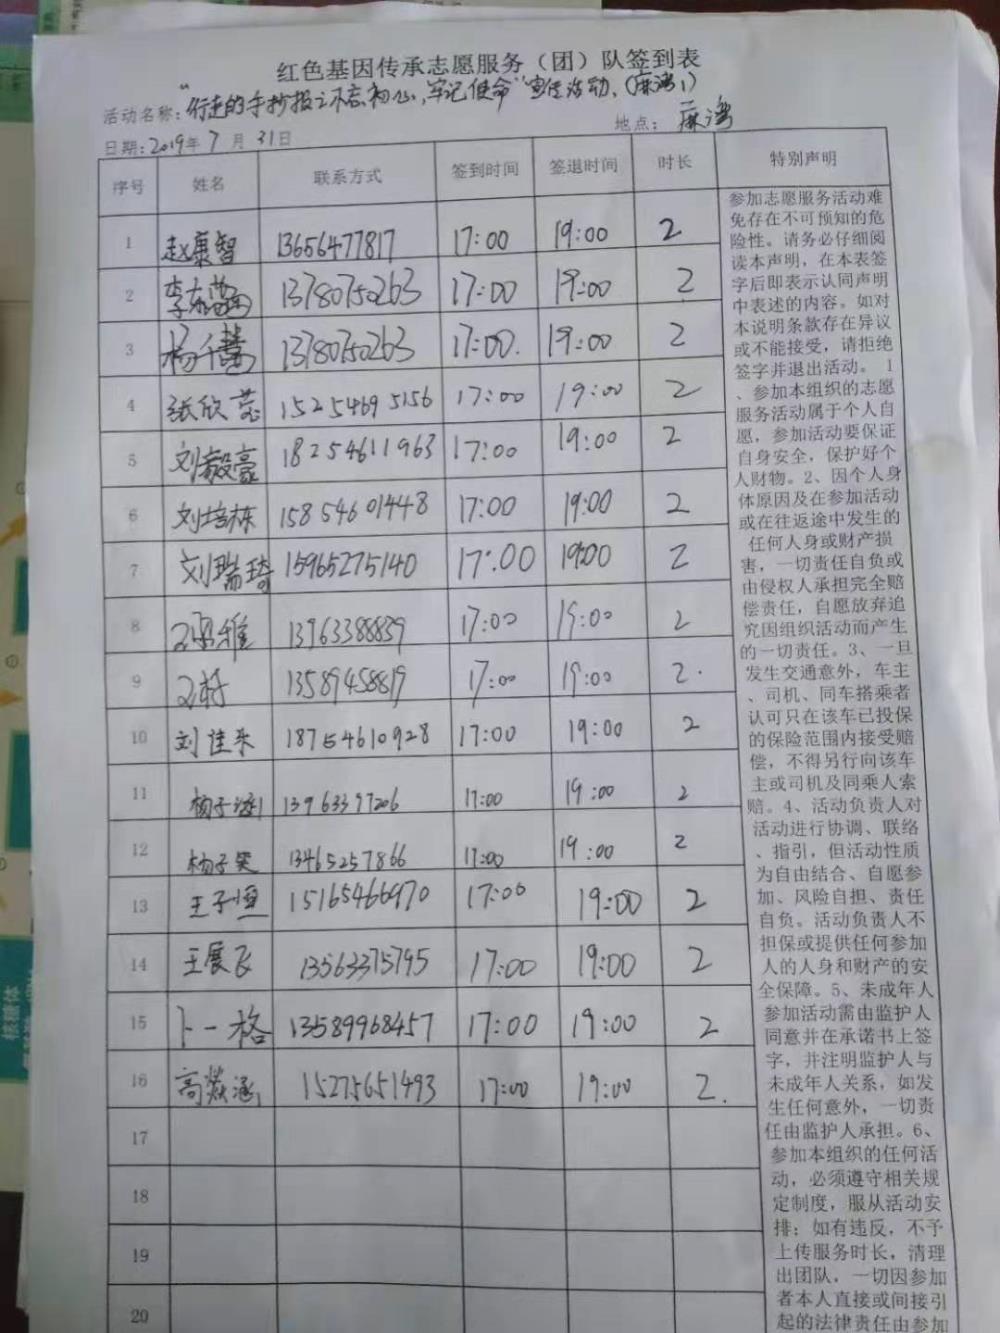 红色基因传承志愿服务（团）队签到表
活动名称："行走的手抄报之不忘初心，牢记使命"宣传活动、(麻湾1)
日期：2019年7月31日 地点：麻湾
序号 姓名 联系方式 签到时间 签退时间 时长 特别声明
1 赵康智 13656477817 17:00 19:00 2
2 13780750263 17:00 19:00 2
3 杨千慧 13780750263 17:00. 19:00 2
4 张欣蕊 15254695156 17:00 19:00 2
5 刘毅豪 18254611963 17:00 19:00 2
6 刘培栋 15854601448 17:00 19:00 2
7 刘瑞琦 15965275140 17:00 19:00 2
8 13963388839 17:00 19:00 2
9 13589458819 17:00 19:00 2.
10 刘佳乐 18754610928 17:00 19:00 2
11 杨子涵 13963397206 17:00 19:00 2
12 杨子笑 13465257866 17:00 19:00 2
13 王子恒 15165466970 17:00 19:00 2
14 王展飞 13563375795 17:00 19:00 2
15 卜一格 13589968457 17:00 19:00 2
16 高燚涵 15275651493 17:00 19:00 2.
17
18
19
20
参加志愿服务活动难
免存在不可预知的危
险性。请务必仔细阅
读本声明，在本表签
字后即表示认同声明
中表述的内容。如对
本说明条款存在异议
或不能接受，请拒绝
签字并退出活动。 1
、参加本组织的志愿
服务活动属于个人自
愿，参加活动要保证
自身安全，保护好个
人财物。2、因个人身
体原因及在参加活动
或在往返途中发生的
任何人身或财产损
害，一切责任自负或
由侵权人承担完全赔
偿责任，自愿放弃追
究因组织活动而产生
的一切责任。3、一旦
发生交通意外，车主
、司机、同车搭乘者
认可只在该车已投保
的保险范围内接受赔
偿，不得另行向该车
主或司机及同乘人索
赔。4、活动负责人对
活动进行协调、联络
、指引，但活动性质
为自由结合、自愿参
加、风险自担、责任
自负。活动负责人不
担保或提供任何参加
人的人身和财产的安
全保障。5、未成年人
参加活动需由监护人
同意并在承诺书上签
字，并注明监护人与
未成年人关系，如发
生任何意外，一切责
任由监护人承担。6、
参加本组织的任何活
动，必须遵守相关规
定制度，服从活动安
排；如有违反，不予
上传服务时长，清理
出团队，一切因参加
者本人直接或间接引
起的法律责任由参加
核糖体